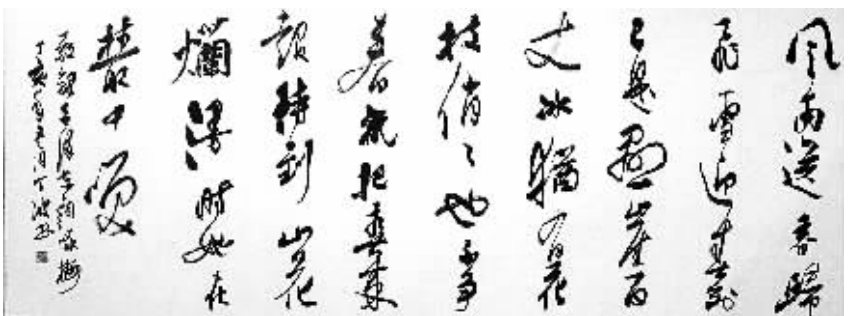 风雨送春歸
飛雪迎春到
已是懸崖百
丈冰猶有花
枝俏俏也不爭
春祇把春來
報待到山花
爛漫時她在
叢中笑
敬録毛澤東詞詠梅
丁亥年